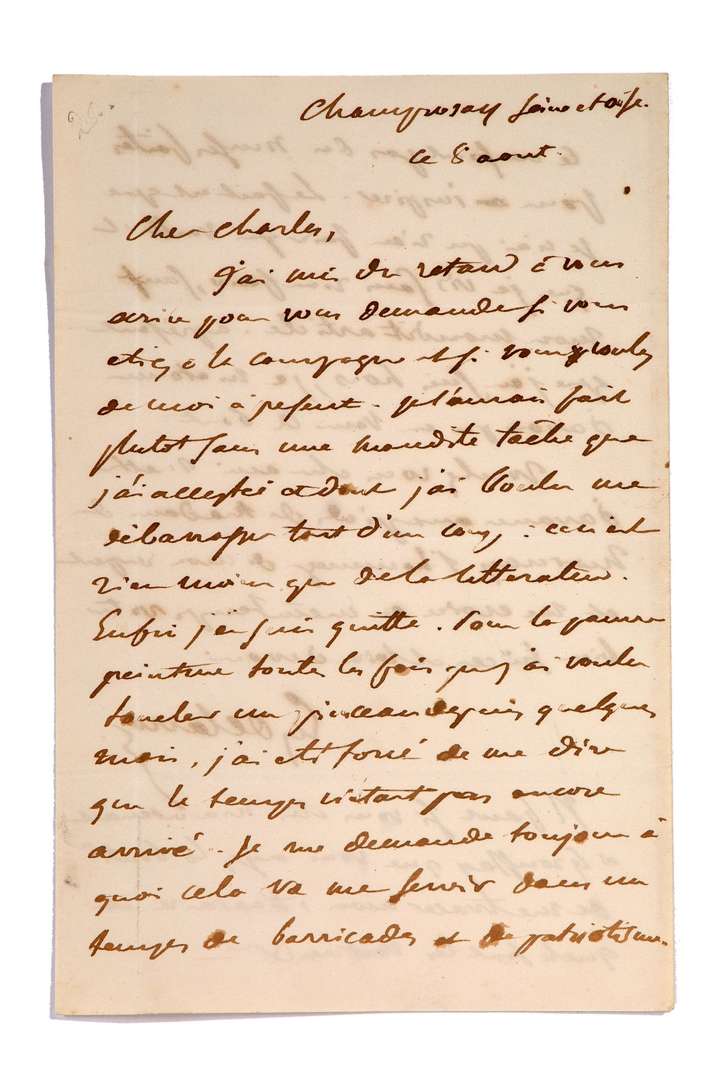 Champrosay Seine et Oise.
ce 8 aout.
Cher Charles,
J'ai mis du retard à vous
ecrire pour vous demander si vous
etiez à la campagne et si vous voulez
de moi à present. Je l'aurais fait
plutot sans une maudite tache que
j'ai acceptée et dont j'ai voulu me
débarrasser tout d'un coup : ce n'est
rien moins que de la litterature.
Enfin j'en suis quitte. Pour la pauvre
peinture toutes les fois que j'ai voulu
toucher un pinceau depuis quelques
mois, j'ai été forcé de me dire
que le temps n'etait pas encore
arrivé. Je me demande toujours à
quoi cela va me servir dans un
temps de barricades et de patriotisme.